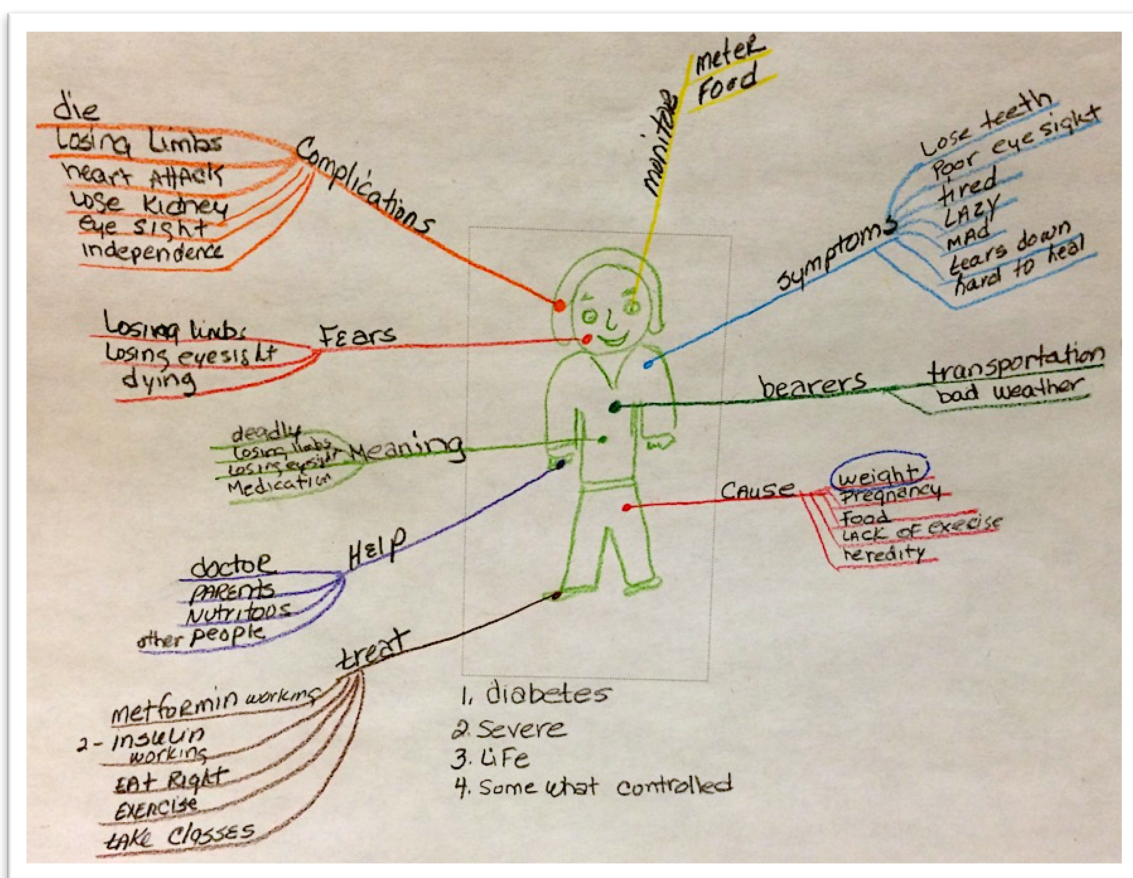 meter
Food
monitor
die
Losing Limbs
heart Attack
Lose Kidney
eye sight
independence
Complications
Lose teeth
Poor eye sight
tired
LAZY
MAd
tears down
hard to heal
symptoms
Losing limbs
Losing eyesight
dying
Fears
bearers
transportation
bad weather
deadly
Losing limbs
Losing eyesight
Medication
Meaning
Cause
weight
Pregnancy
Food
LACK of Execise
heredity
Help
doctor
PARENTS
NUTRITOOS
other People
treat
metformin working
2-insulin
working
EAt Right
EXERCISE
tAKE ClASSES
1. diabetes
2. Severe
3. LiFe
4. Some what controlled